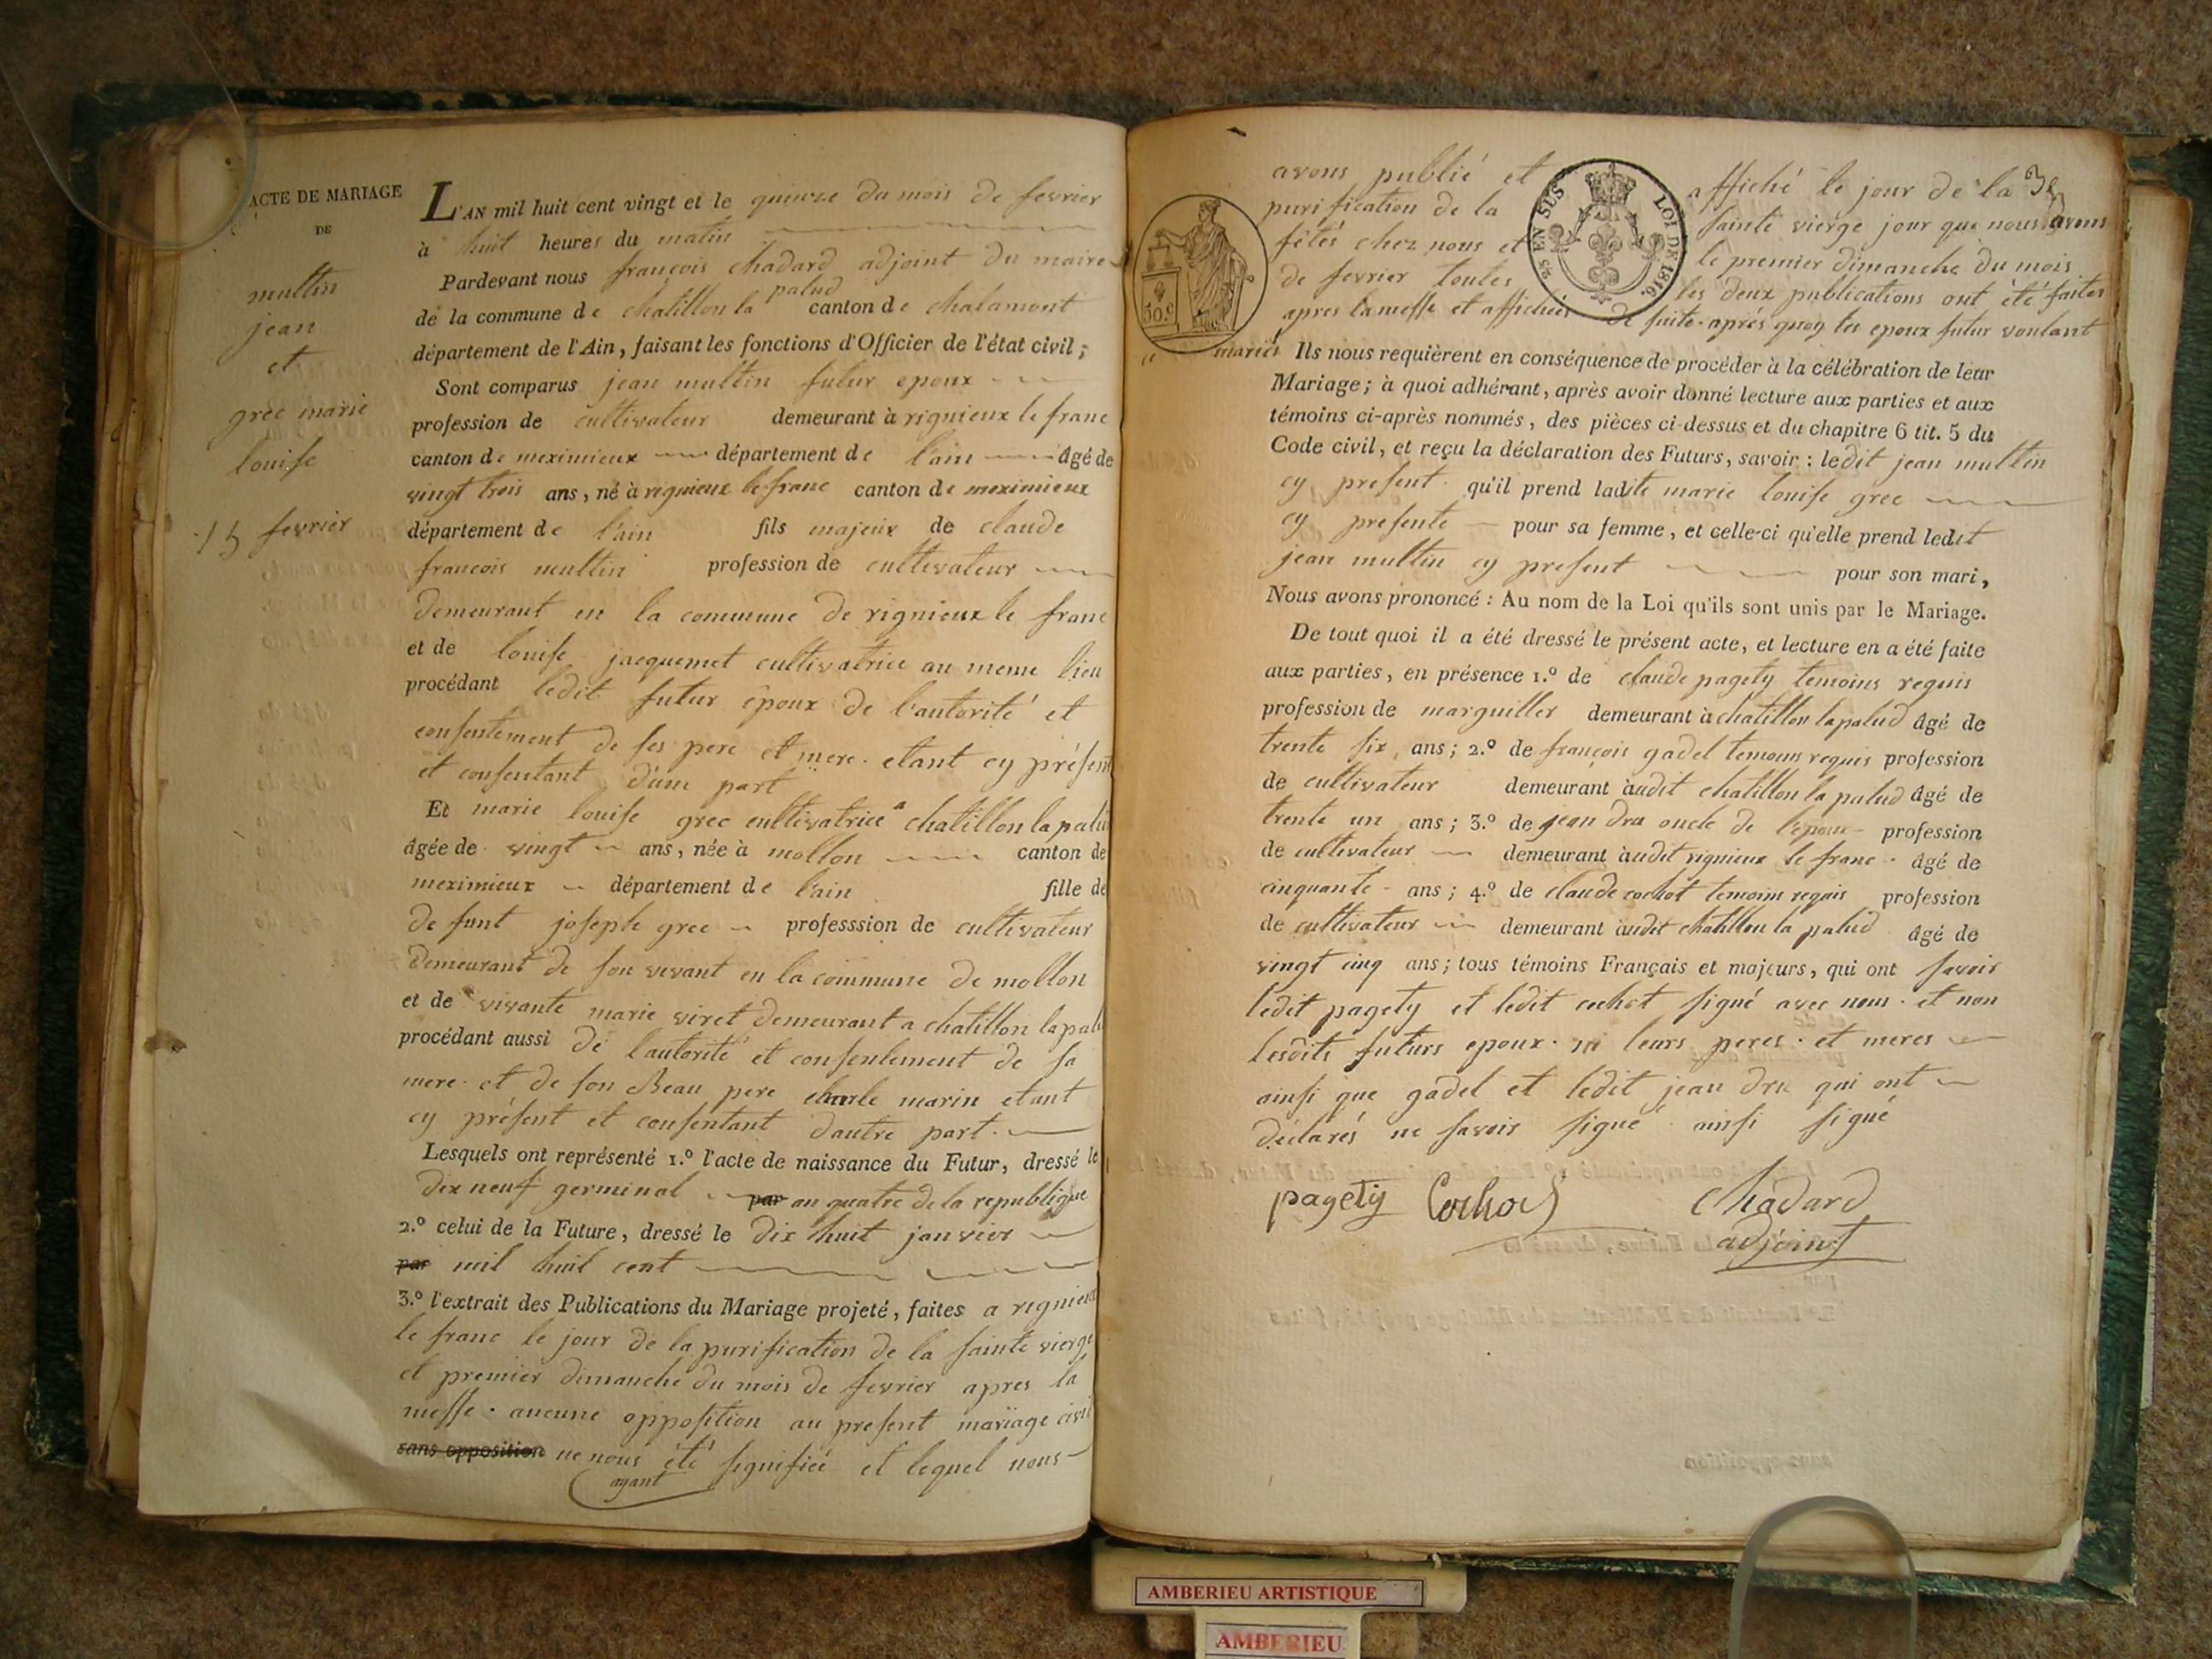 ACTE DE MARIAGE
DE
multin
jean
et
grec marie
louise
15 fevrier
L'AN mil huit cent vingt et le quinze du mois de fevrier
à huit heures du matin
Pardevant nous françois chadard adjoint du maire
de la commune de chatillon la palud canton de chalamont
département de l'Ain, faisant les fonctions d'Officier de l'état civil;
Sont comparus jean multin futur epoux
profession de cultivateur demeurant à rignieux le franc
canton de meximieux département de l'ain âgé de
vingt trois ans, né à rignieux le franc canton de meximieux
département de l'ain fils majeur de claude
francois multin profession de cultivateur
demeurant en la commune de rignieux le franc
et de louise jacquemet cultivatrice au meme lieu
procédant ledit futur époux de l'autorité et
consentement de ses pere et mere. etant cy présent
et consentant d'une part
Et marie louise grec cultivatrice a chatillon la palud
âgée de vingt ans, née à mollon canton de
meximieux département de l'ain fille de
defunt joseph grec professsion de cultivateur
demeurant de son vivant en la commune de mollon
et de vivante marie viret demeurant a chatillon la palu
procédant aussi de l'autorité et consentement de sa
mere. et de son Beau pere charle marin etant
cy présent et consentant d'autre part.
Lesquels ont représenté 1.º l'acte de naissance du Futur, dressé le
dix neuf germinal par an quatre de la republique
2.º celui de la Future, dressé le dix huit janvier
par mil huit cent
3.º l'extrait des Publications du Mariage projeté, faites a rignieux
le franc le jour de la purification de la sainte vierge
et premier dimanche du mois de fevrier apres la
messe. aucune opposition au present mariage civil
sans opposition ne nous été signifiée et lequel nous
ayant
30.c
25 EN SUS LOI DE 1816.
avons publié et affiché le jour de la
purification de la sainte vierge jour que nous avons
fêtés chez nous et le premier dimanche du mois
de fevrier toutes les deux publications ont été faites
apres la messe et affichées de suite. aprés quoy les epoux futur voulant
mariés Ils nous requièrent en conséquence de procéder à la célébration de leur
Mariage; à quoi adhérant, après avoir donné lecture aux parties et aux
témoins ci-après nommés, des pièces ci-dessus et du chapitre 6 tit. 5 du
Code civil, et reçu la déclaration des Futurs, savoir: ledit jean multin
cy present. qu'il prend ladite marie louise grec
cy presente pour sa femme, et celle-ci qu'elle prend ledit
jean multin cy present pour son mari,
Nous avons prononcé: Au nom de la Loi qu'ils sont unis par le Mariage.
De tout quoi il a été dressé le présent acte, et lecture en a été faite
aux parties, en présence 1.º de claude pagety temoins requis
profession de marguiller demeurant à chatillon la palud âgé de
trente six ans; 2.º de françois gadel temoins requis profession
de cultivateur demeurant audit chatillon la palud âgé de
trente un ans; 3.º de jean dru oncle de l'epoux profession
de cultivateur demeurant audit rignieux le franc. âgé de
cinquante ans; 4.º de claude cochot temoins requis profession
de cultivateur demeurant audit chatillon la palud âgé de
vingt cinq ans; tous témoins Français et majeurs, qui ont savoir
ledit pagety et ledit cochot signé avec nous. et non
lesdits futurs epoux. ni leurs peres. et meres
ainsi que gadel et ledit jean dru qui ont
déclarés ne savoir signé ainsi signé
pagety Cochot chadard
adjoint
AMBERIEU ARTISTIQUE
AMBERIEU